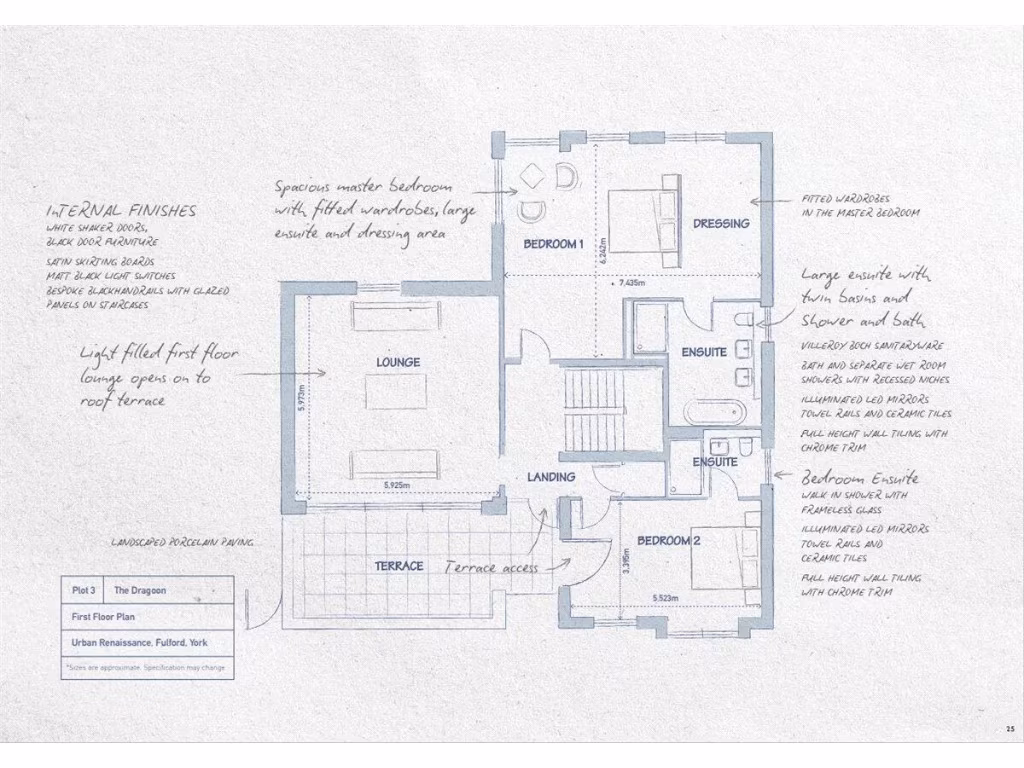 Spacious master bedroom
with fitted wardrobes, large
ensuite and dressing area
InTERNAL FINISHES
WHITE SHAKER DOORS,
BLACK DOOR FURNITURE
SATIN SKIRTING BOARDS
MATT BLACK LIGHT SWITCHES
BESPOKE BLACKHANDRAILS WITH GLAZED
PANELS ON STAIRCASES
Light filled first floor
lounge opens on to
roof terrace
LANDSCAPED PORCELAIN PAVING
BEDROOM 1
6,242m
7,435m
DRESSING
FITTED WARDROBES
IN THE MASTER BEDROOM
Large ensuite with
twin basins and
Shower and bath
VILLEROY BOCH SANITARYWARE
BATH AND SEPARATE WET ROOM
SHOWERS WITH RECESSED NICHES
ILLUMINATED LED MIRRORS
TOWEL RAILS AND CERAMIC TILES
FULL HEIGHT WALL TILING WITH
CHROME TRIM
LOUNGE
5,973m
5,925m
ENSUITE
LANDING
ENSUITE
Bedroom Ensuite
WALK IN SHOWER WITH
FRAMELESS GLASS
ILLUMINATED LED MIRRORS
TOWEL RAILS AND
CERAMIC TILES
FULL HEIGHT WALL TILING
WITH CHROME TRIM
BEDROOM 2
3,395m
5,523m
TERRACE
Terrace access
Plot 3 The Dragoon
First Floor Plan
Urban Renaissance, Fulford, York
*Sizes are approximate. Specification may change
25